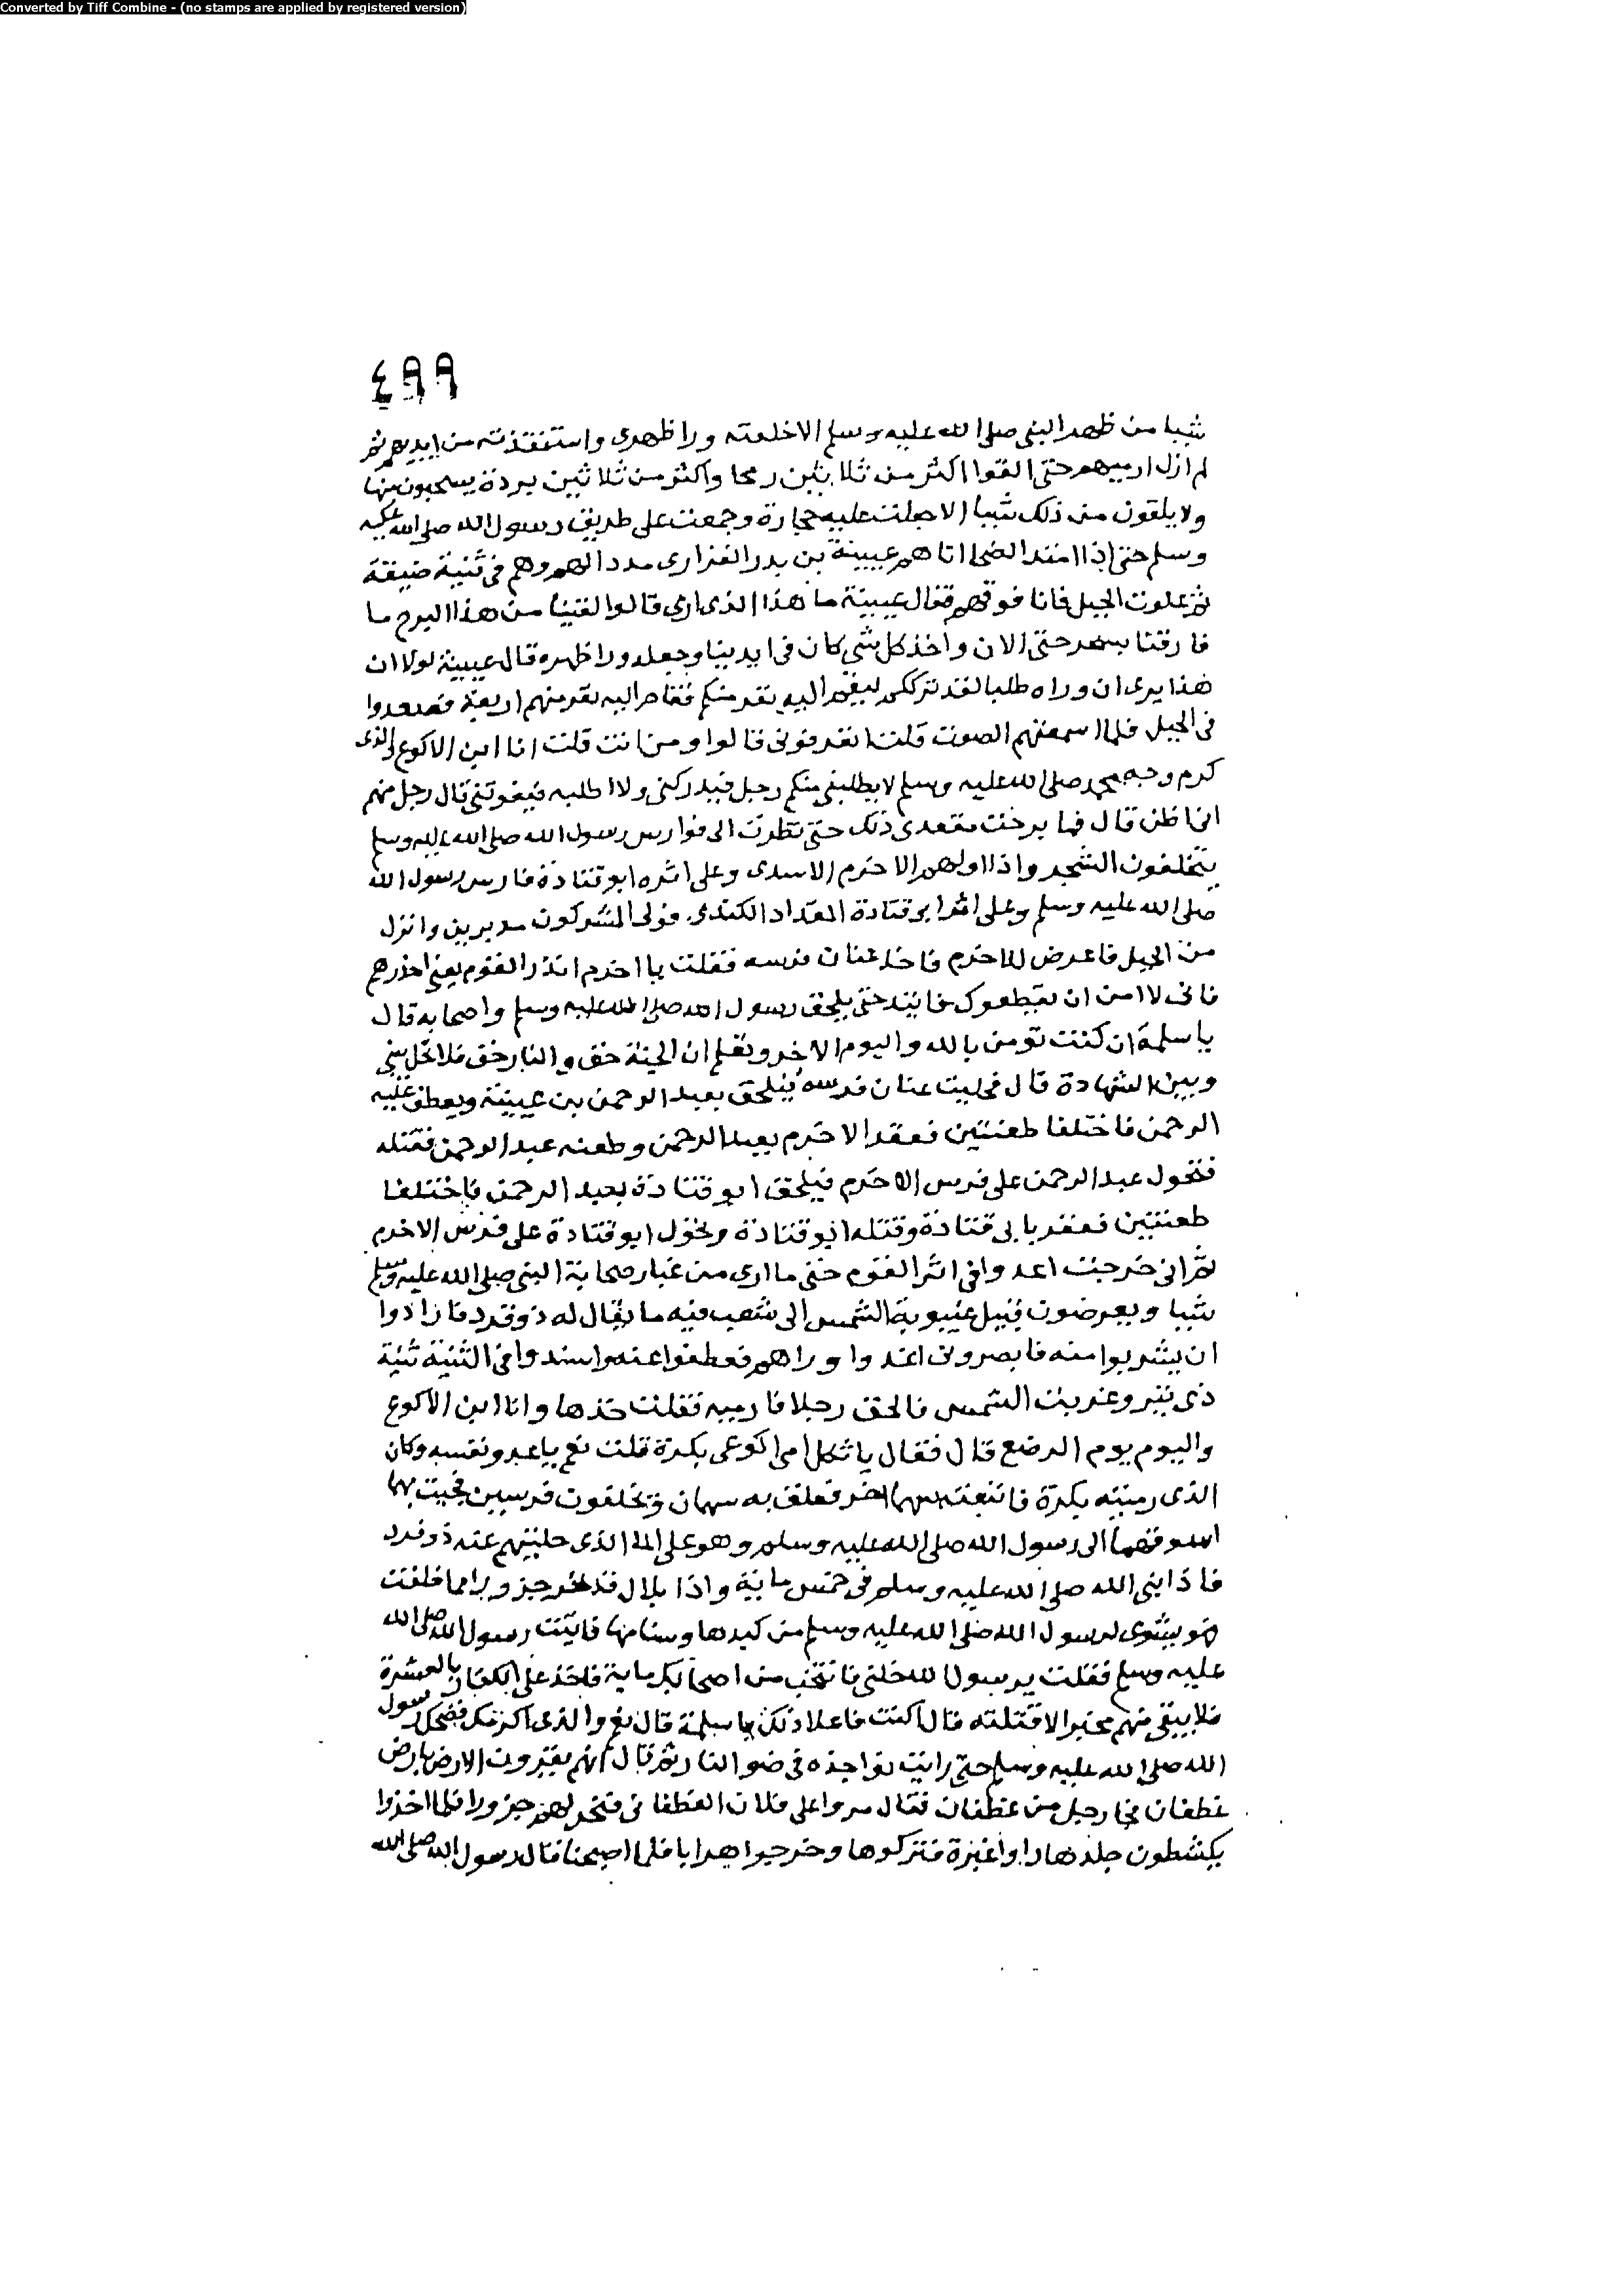 Converted by Tiff Combine - (no stamps are applied by registered version)
٤٩٩
شيا من ظهر النبي صلى الله عليه وسلم الا خلفته ورا ظهري واستنقذته من ايديهم ثم
لم ازل ارميهم حتى القوا اكثر من ثلاثين رمحا واكثر من ثلاثين بردة يستخفون منها
ولا يلقون من ذلك شيا الا جعلت عليه حجارة وجمعت على طريق رسول الله صلى الله عليه
وسلم حتى اذا امتد الضحا اتاهم عيينة بن بدر الفزاري مددا لهم وهم في ثنية ضيقة
ثم علوت الجبل فانا فوقهم فقال عيينة ما هذا الذي ارى قالوا لقينا من هذا البرح ما
فارقنا بسحر حتى الان واخذ كل شي كان في ايدينا وجعله ورا ظهره قال عيينة لولا ان
هذا يرى ان وراه طلبا لقد ترككم ليقم اليه نفر منكم فقام اليه نفر منهم اربعة فصعدوا
في الجبل فلما اسمعتهم الصوت قلت اتعرفوني قالوا ومن انت قلت انا ابن الاكوع والذى
كرم وجه محمد صلى الله عليه وسلم لا يطلبني منكم رجل فيدركني ولا اطلبه فيفوتني قال رجل منهم
اني اظن قال فما برحت مقعدي ذلك حتى نظرت الى فوارس رسول الله صلى الله عليه وسلم
يتخللون الشجر واذا اولهم الاخرم الاسدى وعلى اثره ابو قتادة فارس رسول الله
صلى الله عليه وسلم وعلى اثر ابو قتادة المقداد الكندى فولى المشركون مدبرين وانزل
من الجبل فاعرض للاخرم فاخذ عنان فرسه فقلت يا اخرم انذر القوم يعني احذرهم
فانى لا امن ان يقطعوك فاتئد حتى يلحق رسول الله صلى الله عليه وسلم واصحابه قال
يا سلمة ان كنت تؤمن بالله واليوم الاخر وتعلم ان الجنة حق والنار حق فلا تحل بينى
وبين الشهادة قال فخليت عنان فرسه فيلحق بعبد الرحمن بن عيينة ويعطف عليه
الرحمن فاختلفا طعنتين فعقر الاخرم بعبد الرحمن وطعنه عبد الرحمن فقتله
فتحول عبد الرحمن على فرس الاخرم فيلحق ابو قتادة بعبد الرحمن فاختلفا
طعنتين فعقر بابى قتادة وقتله ابو قتادة وتحول ابو قتادة على فرس الاخرم
ثم انى خرجت اعدوا في اثر القوم حتى ما ارى من غبار صحابة النبي صلى الله عليه وسلم
شيا ويعرضون قبيل غيبوبة الشمس الى شعب فيه ما يقال له ذو قرد فارادوا
ان يشربوا منه فابصرونى اعدوا وراهم فعطفوا عنه واسندوا في الثنية ثنية
ذى بئر وغربت الشمس فالحق رجلا فارميه فقلت خذها وانا ابن الاكوع
واليوم يوم الرضع قال فقال يا ثكل ام اكوعى بكرة قلت نعم يا عدو نفسه وكان
الذى رميته بكرة فاتبعته سهما اخر فعلق به سهمان وتخلفون فرسين فجيت بهما
اسوقهما الى رسول الله صلى الله عليه وسلم وهو على الما الذى حليتهم عنه ذو قرد
فاذا بنبي الله صلى الله عليه وسلم في خمس ماية واذا بلال قد نحر جزورا مما خلفت
فهو يشوى لرسول الله صلى الله عليه وسلم من كبدها وسنامها فاتيت رسول الله صلى الله
عليه وسلم فقلت يرسول الله خلنى فانتخب من اصحابك ماية فاخذ على الكفار بالعشرة
فلا يبقى منهم مخبر الا قتلته قال اكنت فاعلا ذلك يا سلمة قال نعم والذى اكرمك فضحك رسول
الله صلى الله عليه وسلم حتى رايت نواجذه في ضو النار ثم قال انهم يقرون الان بارض
غطفان فجا رجل من غطفان فقال مروا على فلان الغطفاني فنحر لهم جزورا فلما اخذوا
يكشطون جلدها راوا غبرة فتركوها وخرجوا هرابا فلما اصبحنا قال رسول الله صلى الله